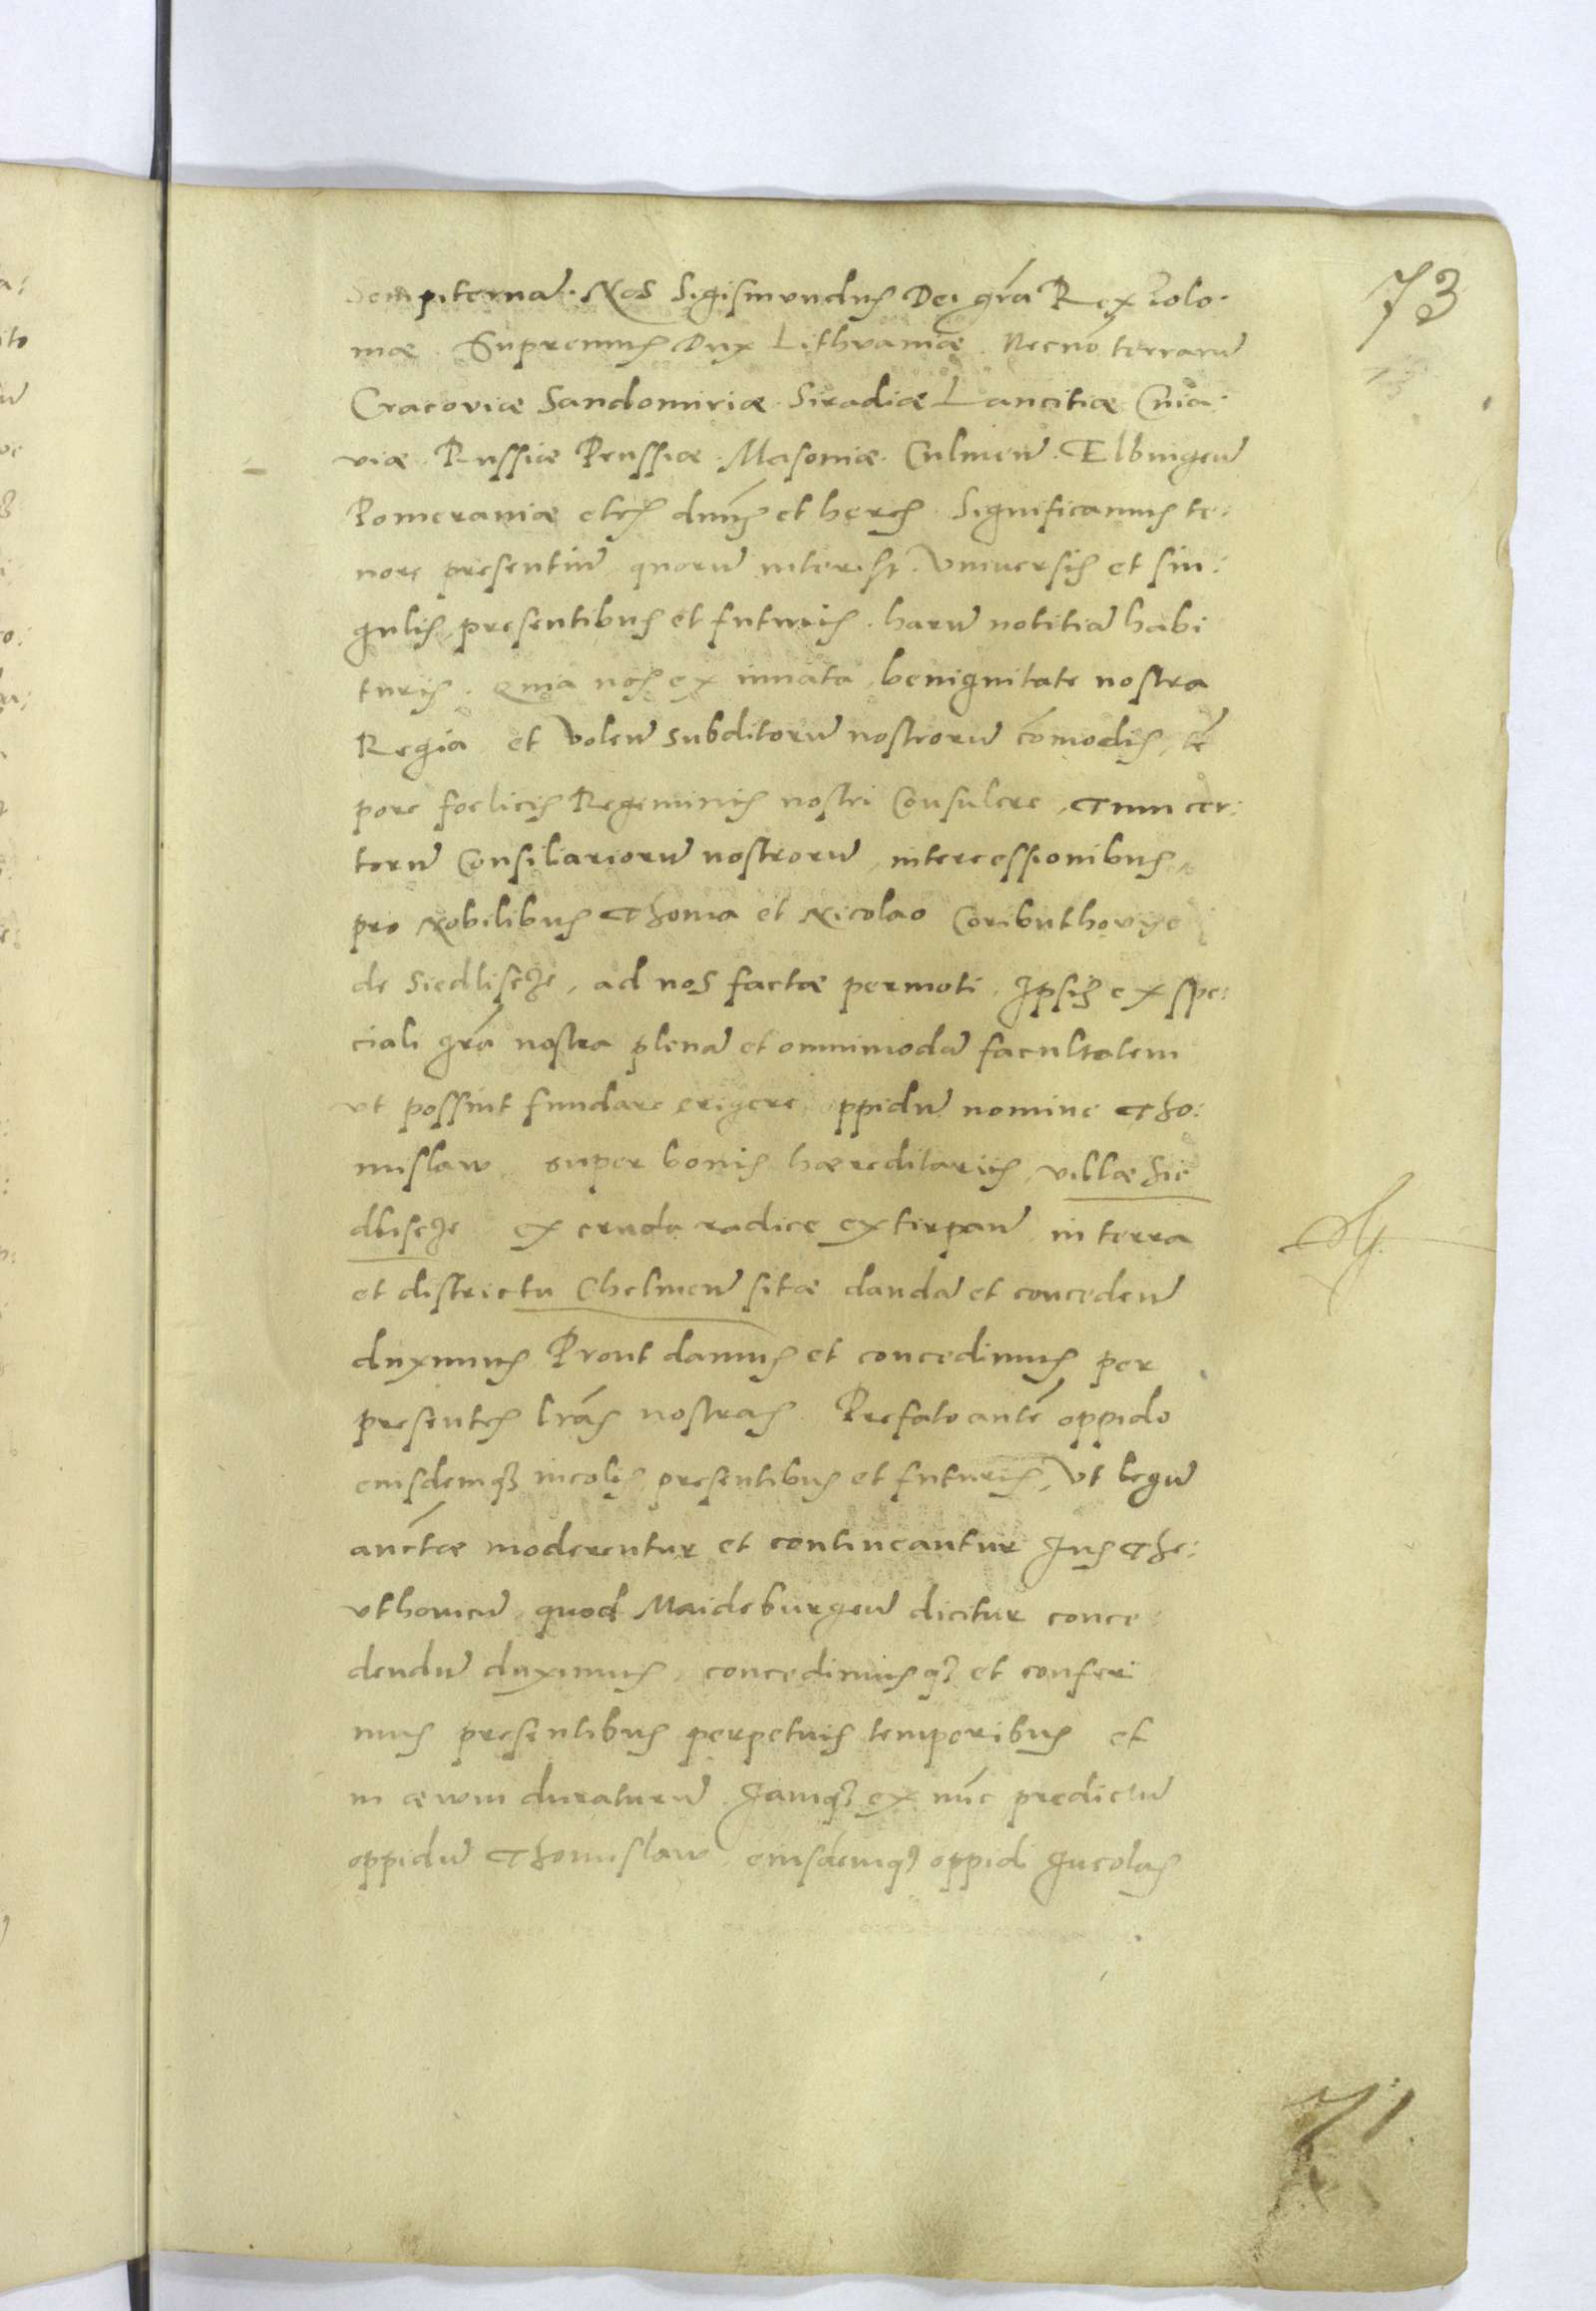 73
sempiternā. Nos Sigismundus Dei grā Rex Polo:
niæ. Supremus Dux Lithvaniæ. Necnō terrarū
Cracoviæ Sandomiriæ. Siradiæ Lancitiæ Cuia:
viæ. Russiæ Prussiæ. Masoviæ. Culmeñ. Elbingeñ
Pomeraniæ etc̃ dñus et heres. Significamus te:
nore presentiū quorū interest. Vniversis et sin:
gulis presentibus et futuris. harū notitiā habi
turis. Quia nos ex innata benignitate nostra
Regia et voleñ subditorū nostrorū cōmodis, tē
pore foelicis Regeminis nostri Consulere, Tum cer:
torū Consiliariorū nostrorū, intercessionibus,
pro Nobilibus Thoma et Nicolao Coributhovye
de Siedliscze, ad nos factæ permoti. Ipsis ex spe:
ciali grā nostra plenā et omnimodā facultatem
ut possint fundare erigere oppidū nomine Tho:
mislaw super bonis hæreditariis, villæ Sie
dliscze ex cruda radice extirpañ in terra
et districtu Chelmeñ sitæ dandā et concedeñ
duximus Prout damus et concedimus per
presentes lrās nostras. Prefato autē oppido
eiusdemq3 incolis presentibus et futuris, Ut legū
auctæ moderentur et contineantur Jus The:
uthonicū quod Maideburgeñ dicitur conce:
dendū duximus, concedimusq3 et conferi
mus presentibus perpetuis temporibus et
in ævum duraturū. Jamq3 ex nūc predictū
oppidū Thomislaw eiusdemq3 oppidi Incolas
71